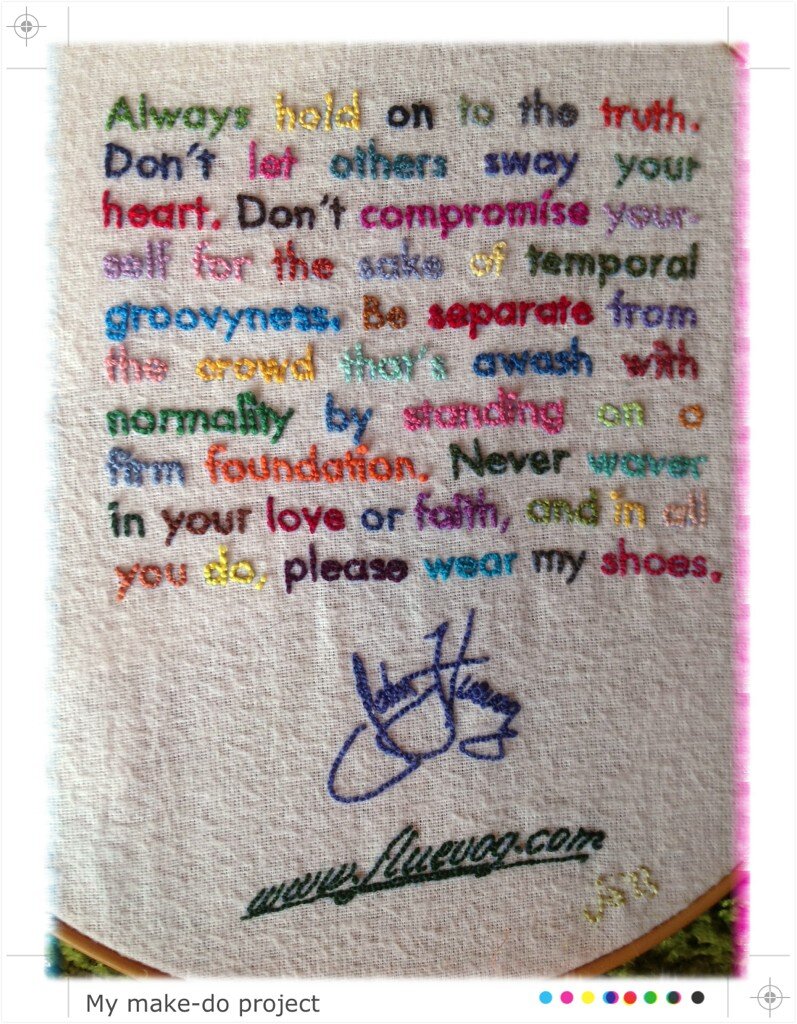 Always hold on to the truth.
Don't let others sway your
heart. Don't compromise your-
self for the sake of temporal
groovyness. Be separate from
the crowd that's awash with
normality by standing on a
firm foundation. Never waver
in your love or faith, and in all
you do, please wear my shoes.
John Fluevog
www.fluevog.com
My make-do project